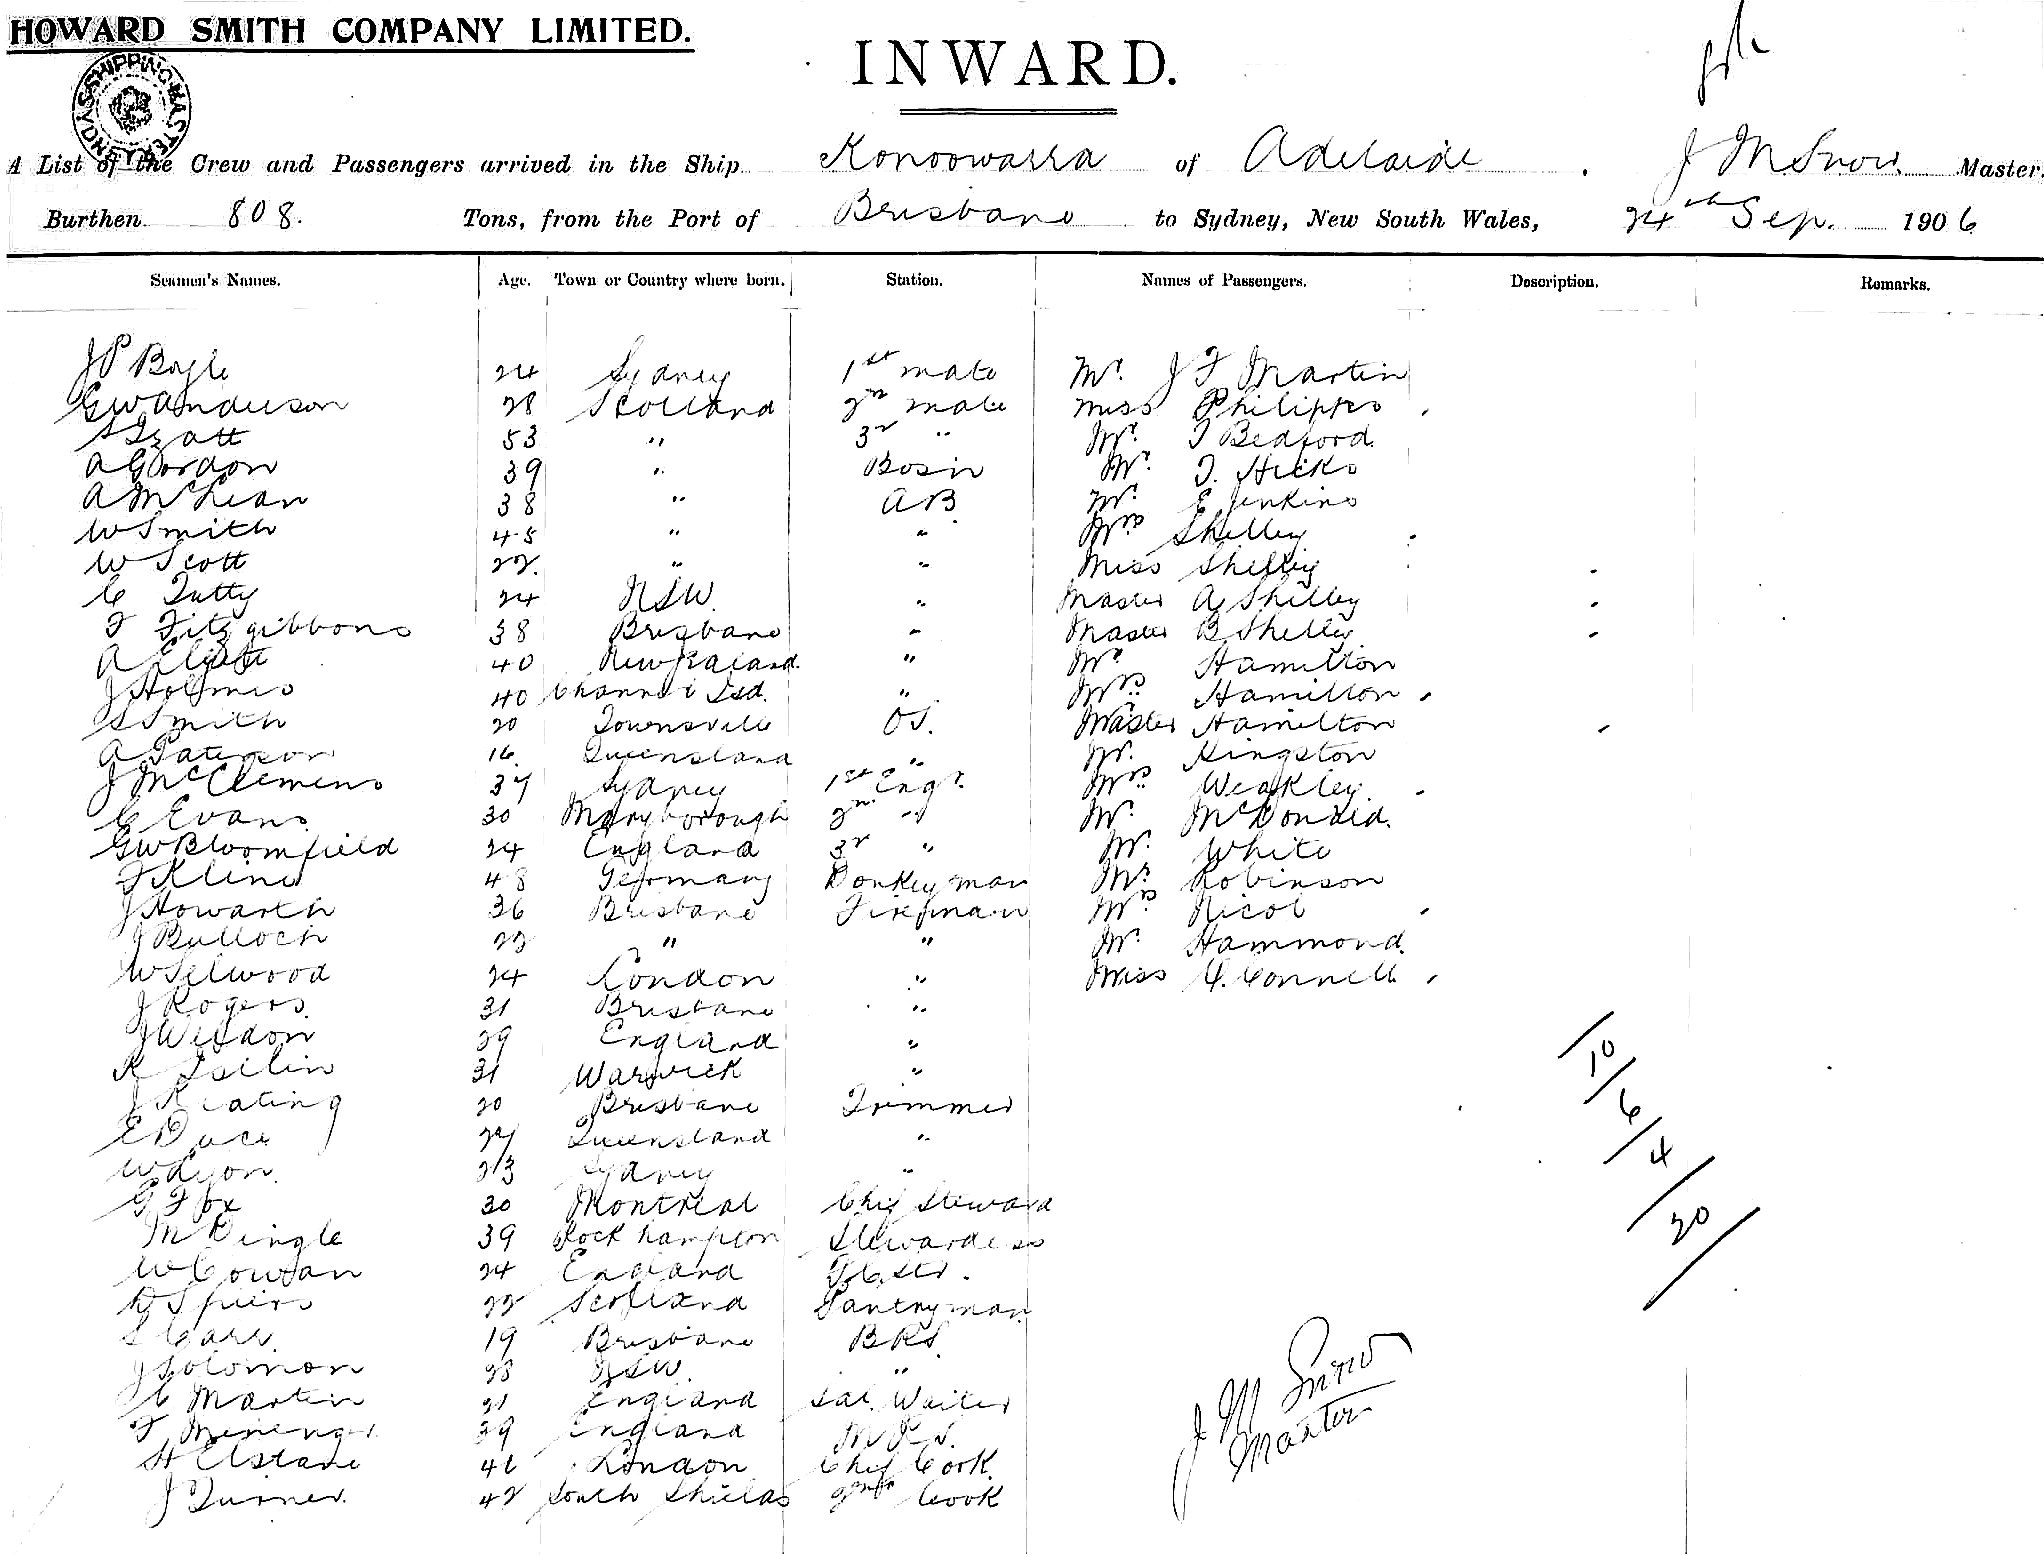 HOWARD SMITH COMPANY LIMITED.
INWARD.
SYDNEY SHIPPING MASTER
A List of the Crew and Passengers arrived in the Ship Konoowarra of Adelaide. J M Snow Master,
Burthen 808. Tons, from the Port of Brisbane to Sydney, New South Wales, 24th Sep. 1906
Seamen's Names. Age. Town or Country where born. Station. Names of Passengers. Description. Remarks.
J P Bogle 24 Sydney 1st mate Mr. J F Martin
G W Anderson 28 Scotland 2nd mate Miss Philipps
53 " 3r " Mr. T Bedford
A Gordon 39 " Bosn Mr. T. Hicks
A McLean 38 " AB Mr. E Jenkins
W Smith 45 " " Mrs Shelley
W Scott 22. " " Miss Shelley
C Tutty 24 NSW. " Master A Shelley
F Fitzgibbons 38 Brisbane " Master B Shelley
A 40 New Zealand " Mr Hamilton
J Holmes 40 Channel Isd. " Mrs Hamilton
S Smith 20 Townsville OS. Master Hamilton
A Paterson 16 Queensland " Mr. Kingston
J McClemens 37 Sydney 1st Engr. Mrs Weakley
C Evans 30 Maryborough 2n " Mr. McDonald.
GW Bloomfield 24 England 3r " Mr. White
F Kline 48 Germany Donkeyman Mr Robinson
J Howarth 36 Brisbane Fireman Mrs Nicol
J Bulloch 22 " " Mr. Hammond.
W Selwood 24 London " Miss C. Connell
J Rogers 31 Brisbane "
J Weldon 29 England "
R 31 Warwick "
J Keating 20 Brisbane Trimmer
E 24 Queensland "
W Lyon 23 Sydney "
G Fox 30 Montreal Chief Steward
M Dingle 39 Rockhampton Stewardess
W Cowan 24 England
D Spiers 22 Scotland Pantryman
S Carr 19 Brisbane BRS
J Solomon 28 NSW. "
C Martin 21 England Sal. Waiter
F 39 England
H Elstane 46 London Chief Cook
J Turner 42 South Shields 2nd Cook
10/6/4/20
J M Snow
Master